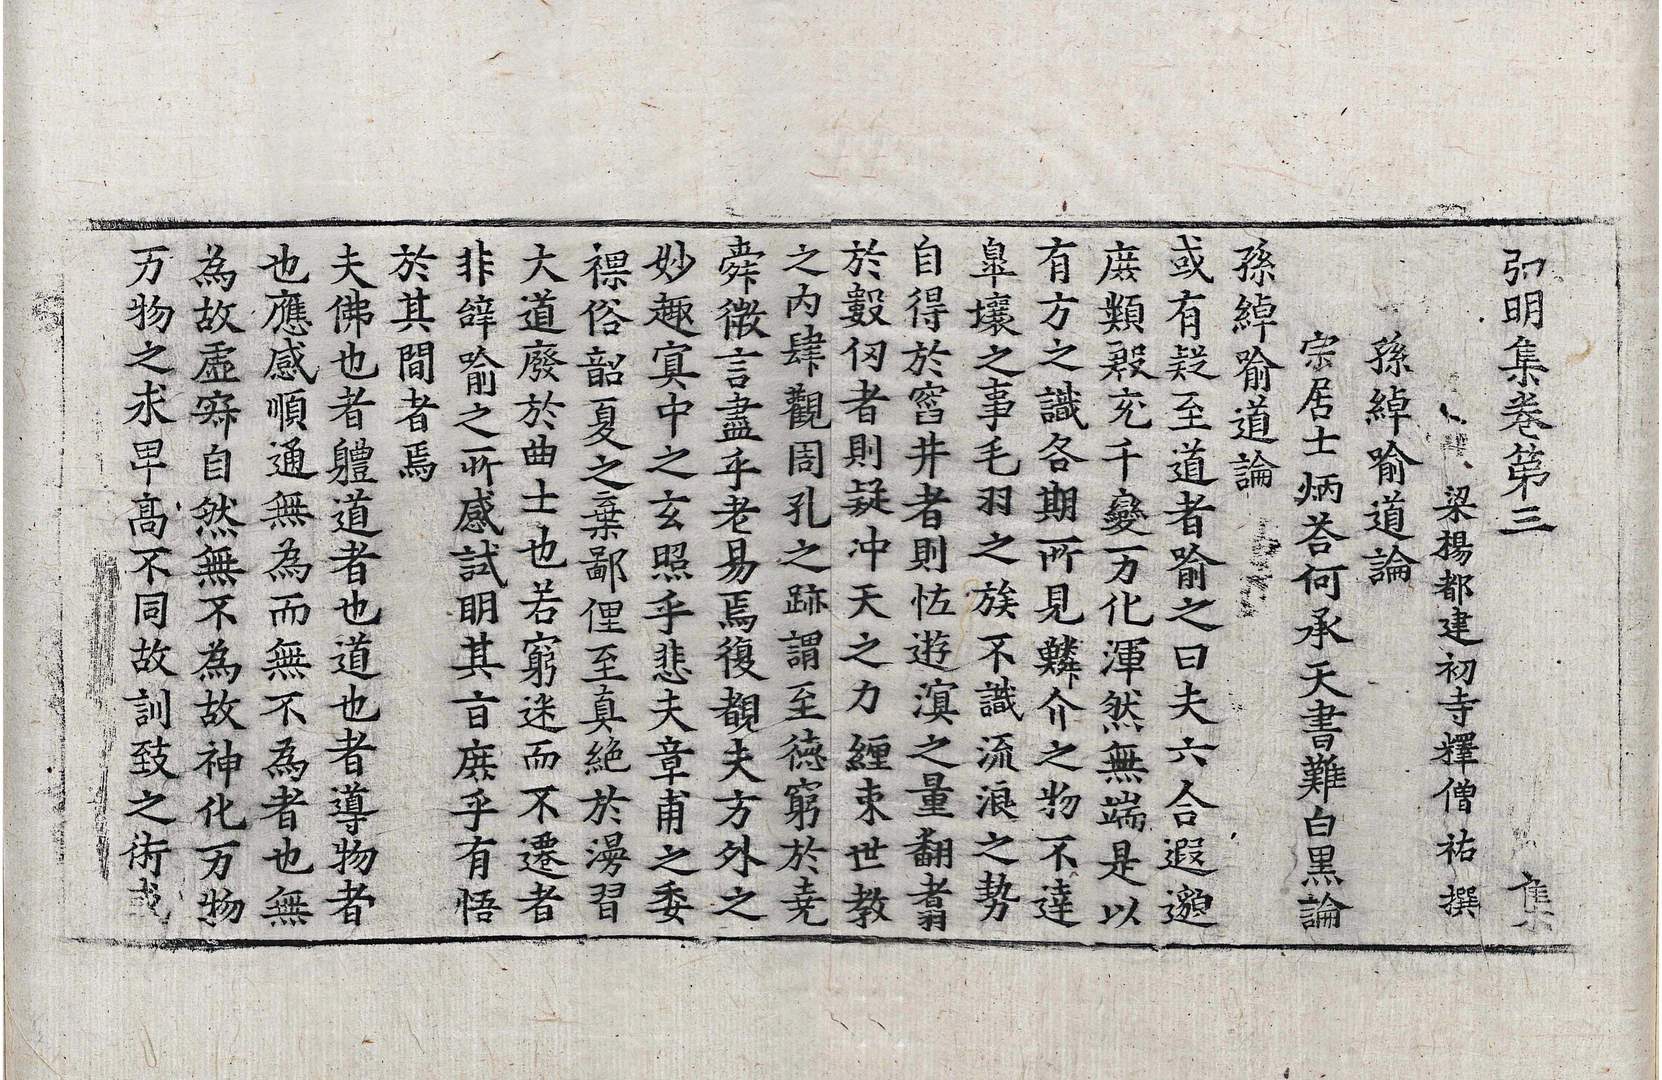 弘明集卷第三 集
梁楊都建初寺釋僧祐撰
孫綽喻道論
宗居士炳荅何承天書難白黑論
孫綽喻道論
或有疑至道者喻之曰夫六合遐邈
庶類殷充千變万化渾然無端是以
有方之識各期所見鱗介之物不達
皐壤之事毛羽之族不識流浪之勢
自得於窞井者則怯遊溟之量翻翥
於數仭者則疑冲天之力纏束世教
之内肆觀周孔之跡謂至德窮於堯
舜微言盡乎老易焉復覩夫方外之
妙趣寘中之玄照乎悲夫章甫之委
裸俗韶夏之棄鄙俚至真絶於漫習
大道廢於曲士也若窮迷而不遷者
非辝喻之所感試明其旨庶乎有悟
於其間者焉
夫佛也者軆道者也道也者導物者
也應感順通無為而無不為者也無
為故虛寂自然無不為故神化万物
万物之求卑髙不同故訓致之術或